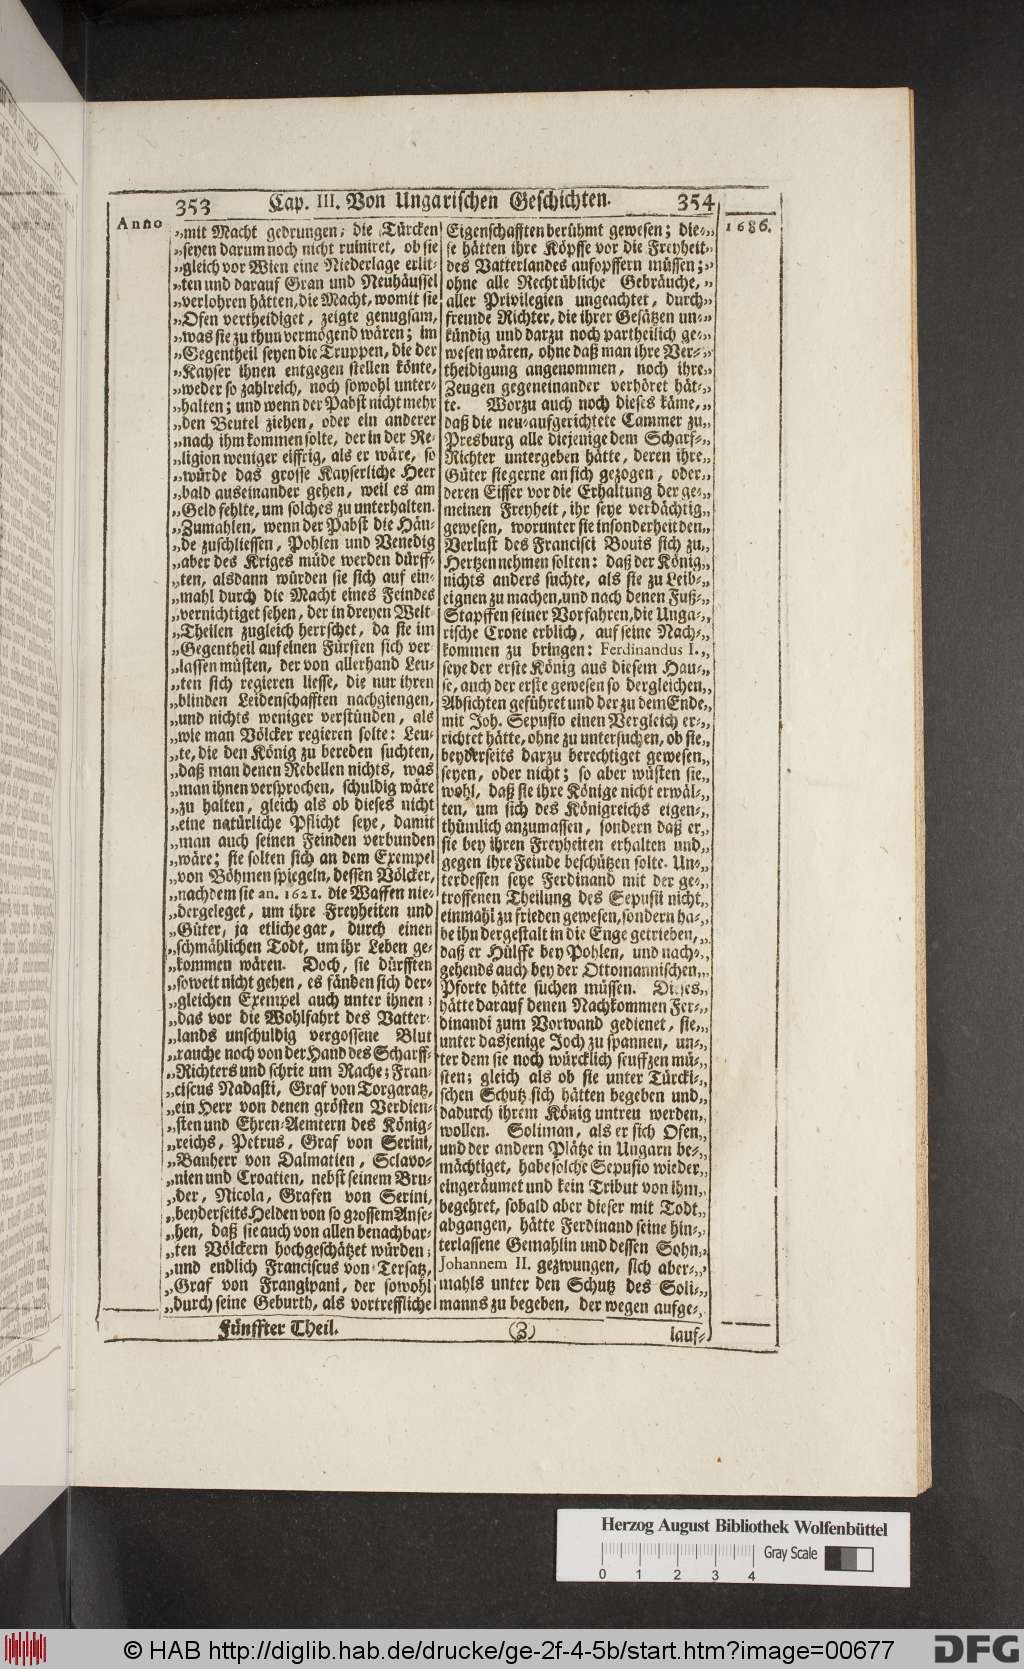 353 Cap. III. Von Ungarischen Geschichten. 354
Anno
1686.
„mit Macht gedrungen; die Türcken
„seyen darum noch nicht ruiniret, ob sie
„gleich vor Wien eine Niederlage erlit-
„ten und darauf Gran und Neuhäussel
„verlohren hätten, die Macht, womit sie
„Ofen vertheidiget, zeigte genugsam,
„was sie zu thun vermögend wären; im
„Gegentheil seyen die Truppen, die der
„Kayser ihnen entgegen stellen könte,
„weder so zahlreich, noch sowohl unter-
„halten; und wenn der Pabst nicht mehr
„den Beutel ziehen, oder ein anderer
„nach ihm kommen solte, der in der Re-
„ligion weniger eiffrig, als er wäre, so
„würde das grosse Kayserliche Heer
„bald auseinander gehen, weil es am
„Geld fehlte, um solches zu unterhalten.
„Zumahlen, wenn der Pabst die Hän-
„de zuschliessen, Pohlen und Venedig
„aber des Kriges müde werden dürff-
„ten, alsdann würden sie sich auf ein-
„mahl durch die Macht eines Feindes
„vernichtiget sehen, der in dreyen Welt-
„Theilen zugleich herrschet, da sie im
„Gegentheil auf einen Fürsten sich ver-
„lassen müsten, der von allerhand Leu-
„ten sich regieren liesse, die nur ihren
„blinden Leidenschafften nachgiengen,
„und nichts weniger verstünden, als
„wie man Völcker regieren solte: Leu-
„te, die den König zu bereden suchten,
„daß man denen Rebellen nichts, was
„man ihnen versprochen, schuldig wäre
„zu halten, gleich als ob dieses nicht
„eine natürliche Pflicht seye, damit
„man auch seinen Feinden verbunden
„wäre; sie solten sich an dem Exempel
„von Böhmen spiegeln, dessen Völcker,
„nachdem sie an. 1621. die Waffen nie-
„dergeleget, um ihre Freyheiten und
„Güter, ja etliche gar, durch einen
„schmählichen Todt, um ihr Leben ge-
„kommen wären. Doch, sie dürfften
„soweit nicht gehen, es fänden sich der-
„gleichen Exempel auch unter ihnen;
„das vor die Wohlfahrt des Vatter-
„lands unschuldig vergossene Blut
„rauche noch von der Hand des Scharff-
„Richters und schrie um Rache; Fran-
„ciscus Nadasti, Graf von Torgaratz,
„ein Herr von denen grösten Verdien-
„sten und Ehren-Aemtern des König-
„reichs, Petrus, Graf von Serini,
„Bauherr von Dalmatien, Sclavo-
„nien und Croatien, nebst seinem Bru-
„der, Nicola, Grafen von Serini,
„beyderseits Helden von so grossem Anse-
„hen, daß sie auch von allen benachbar-
„ten Völckern hochgeschätzet würden;
„und endlich Franciscus von Tersatz,
„Graf von Frangipani, der sowohl
„durch seine Geburth, als vortreffliche
Eigenschafften berühmt gewesen; die-„
se hätten ihre Köpffe vor die Freyheit„
des Vatterlandes aufopffern müssen;„
ohne alle Recht übliche Gebräuche,„
aller Privilegien ungeachtet, durch„
fremde Richter, die ihrer Gesätzen un-„
kündig und darzu noch partheilich ge-„
wesen wären, ohne daß man ihre Ver-„
theidigung angenommen, noch ihre„
Zeugen gegeneinander verhöret hät-„
te. Worzu auch noch dieses käme,„
daß die neu-aufgerichtete Cammer zu„
Presburg alle diejenige dem Scharf-„
Richter untergeben hätte, deren ihre„
Güter sie gerne an sich gezogen, oder„
deren Eiffer vor die Erhaltung der ge-„
meinen Freyheit, ihr seye verdächtig„
gewesen, worunter sie insonderheit den„
Verlust des Francisci Bouis sich zu„
Hertzen nehmen solten: daß der König„
nichts anders suchte, als sie zu Leib-„
eignen zu machen, und nach denen Fuß-„
Stapffen seiner Vorfahren, die Unga-„
rische Crone erblich, auf seine Nach-„
kommen zu bringen: Ferdinandus I.„
seye der erste König aus diesem Hau-„
se, auch der erste gewesen so dergleichen„
Absichten geführet und der zu dem Ende„
mit Joh. Sepusio einen Vergleich er-„
richtet hätte, ohne zu untersuchen, ob sie„
beyderseits darzu berechtiget gewesen„
seyen, oder nicht; so aber wüsten sie„
wohl, daß sie ihre Könige nicht erwäl-„
ten, um sich des Königreichs eigen-„
thümlich anzumassen, sondern daß er„
sie bey ihren Freyheiten erhalten und„
gegen ihre Feinde beschützen solte. Un-„
terdessen seye Ferdinand mit der ge-„
troffenen Theilung des Sepusii nicht„
einmahl zu frieden gewesen, sondern ha-„
be ihn dergestalt in die Enge getrieben,„
daß er Hülffe bey Pohlen, und nach-„
gehends auch bey der Ottomannischen„
Pforte hätte suchen müssen. Dieses„
hätte darauf denen Nachkommen Fer-„
dinandi zum Vorwand gedienet, sie„
unter dasjenige Joch zu spannen, un-„
ter dem sie noch würcklich seuffzen mü-„
sten; gleich als ob sie unter Türcki-„
schen Schutz sich hätten begeben und„
dadurch ihrem König untreu werden„
wollen. Soliman, als er sich Ofen„
und der andern Plätze in Ungarn be-„
mächtiget, habe solche Sepusio wieder„
eingeräumet und kein Tribut von ihm„
begehret, sobald aber dieser mit Todt„
abgangen, hätte Ferdinand seine hin-„
terlassene Gemahlin und dessen Sohn„
Johannem II. gezwungen, sich aber-„
mahls unter den Schutz des Soli-„
manns zu begeben, der wegen aufge-„
Fünffter Theil. (Z) lauf-
Herzog August Bibliothek Wolfenbüttel
Gray Scale
0 1 2 3 4
© HAB http://diglib.hab.de/drucke/ge-2f-4-5b/start.htm?image=00677
DFG